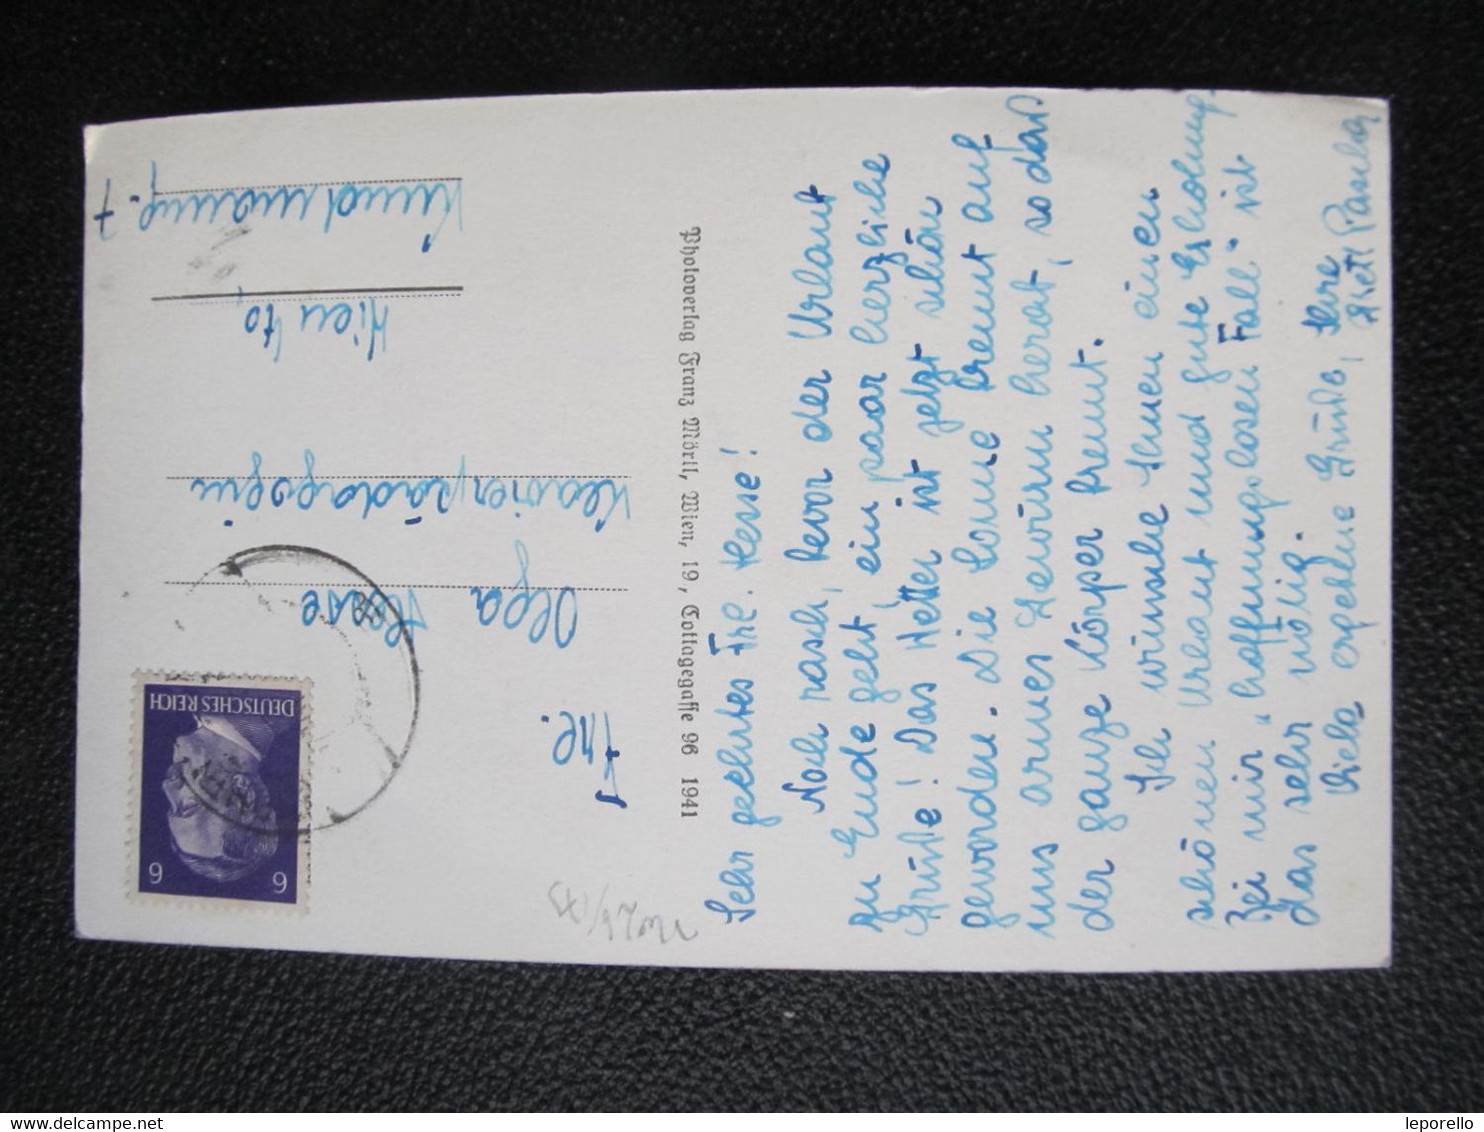 Sehr geehrtes Frl. Hesse!
Noch rasch, bevor der Urlaub
zu Ende geht, ein paar herzliche
Grüße! Das Wetter ist jetzt schön
geworden. Die Sonne brennt auf
uns armes Gewürm herab, so daß
der ganze Körper brennt.
Ich wünsche Ihnen einen
schönen Urlaub und gute Erholung.
Bei mir, hoffnungslosen Fall" ist
das sehr nötig.
Viele ergebene Grüße, Ihre
Grett
Photoverlag Franz Mörtl, Wien, 19, Cottagegasse 96 1941
Frl.
Olga Hesse
Klavierpädagogin
Wien
7
DEUTSCHES REICH
6 6
leporello